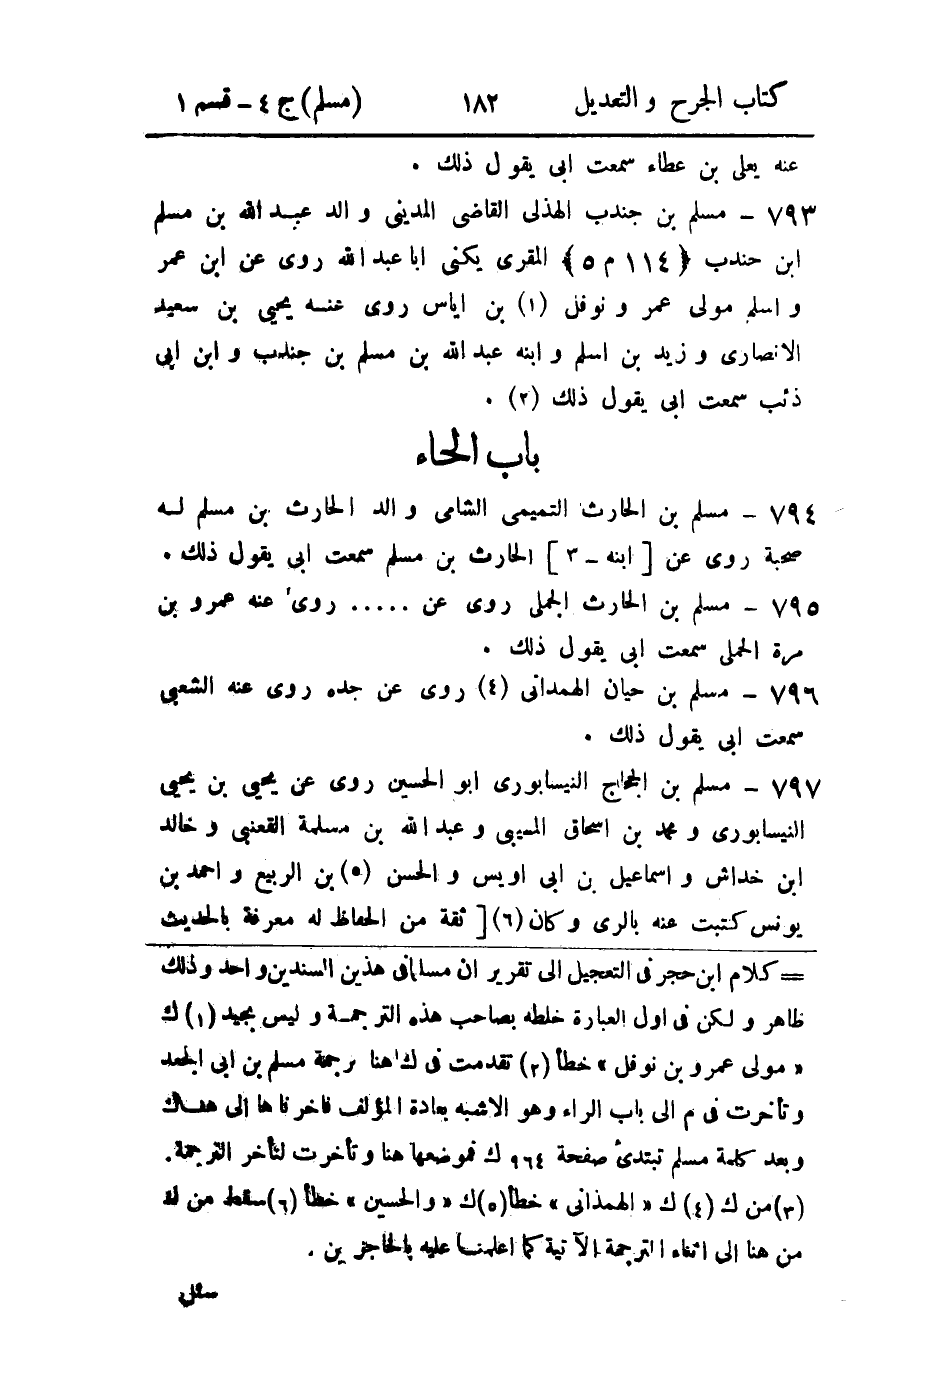 كتاب الجرح و التعديل ١٨٢ (مسلم) ج ٤ - قسم ١
عنه يعلى بن عطاء سمعت ابى يقول ذلك .
٧٩٣ - مسلم بن جندب الهذلى القاضى المدينى و الد عبد الله بن مسلم
ابن حندب ﴿ ١١٤ م ٥﴾ المقرى يكنى ابا عبد الله روى عن ابن عمر
و اسلم مولى عمر و نوفل (١) بن اياس روى عنه يحيى بن سعيد
الانصارى و زيد بن اسلم و ابنه عبد الله بن مسلم بن جندب و ابن ابى
ذئب سمعت ابى يقول ذلك (٢) .
باب الحاء
٧٩٤ - مسلم بن الحارث التميمى الشامى و الد الحارث بن مسلم له
صحبة روى عن [ ابنه - ٣ ] الحارث بن مسلم سمعت ابى يقول ذلك .
٧٩٥ - مسلم بن الحارث الجملى روى عن ..... روى عنه عمرو بن
مرة الحملى سمعت ابى يقول ذلك .
٧٩٦ - مسلم بن حيان الهمدانى (٤) روى عن جده روى عنه الشعبى
سمعت ابى يقول ذلك .
٧٩٧ - مسلم بن الحجاج النيسابورى ابو الحسين روى عن يحيى بن يحيى
النيسابورى و محمد بن اسحاق المسيبى و عبد الله بن مسلمة القعنبى و خالد
ابن خداش و اسماعيل بن ابى اويس و الحسن (٥) بن الربيع و احمد بن
يونس كتبت عنه بالرى و كان (٦) [ ثقة من الحفاظ له معرفة بالحديث
= كلام ابن حجر فى التعجيل الى تقرير ان مسلما فى هذين السندين واحد وذلك
ظاهر و لكن فى اول العبارة خلطه بصاحب هذه الترجمة و ليس بجيد (١) ك
« مولى عمرو بن نوفل » خطأ (٢) تقدمت فى ك هنا ترجمة مسلم بن ابى الجعد
و تأخرت فى م الى باب الراء وهو الاشبه بعادة المؤلف فاخرناها إلى هناك
و بعد كلمة مسلم تبتدئ صفحة ٩٦٤ ك فموضعها هنا و تأخرت لتأخر الترجمة.
(٣) من ك (٤) ك « الهمذانى » خطأ (٥) ك « والحسين » خطأ (٦) سقط من ك
من هنا الى اثناء الترجمة الآتية كما اعلمنا عليه بالحاجزين .
سئل